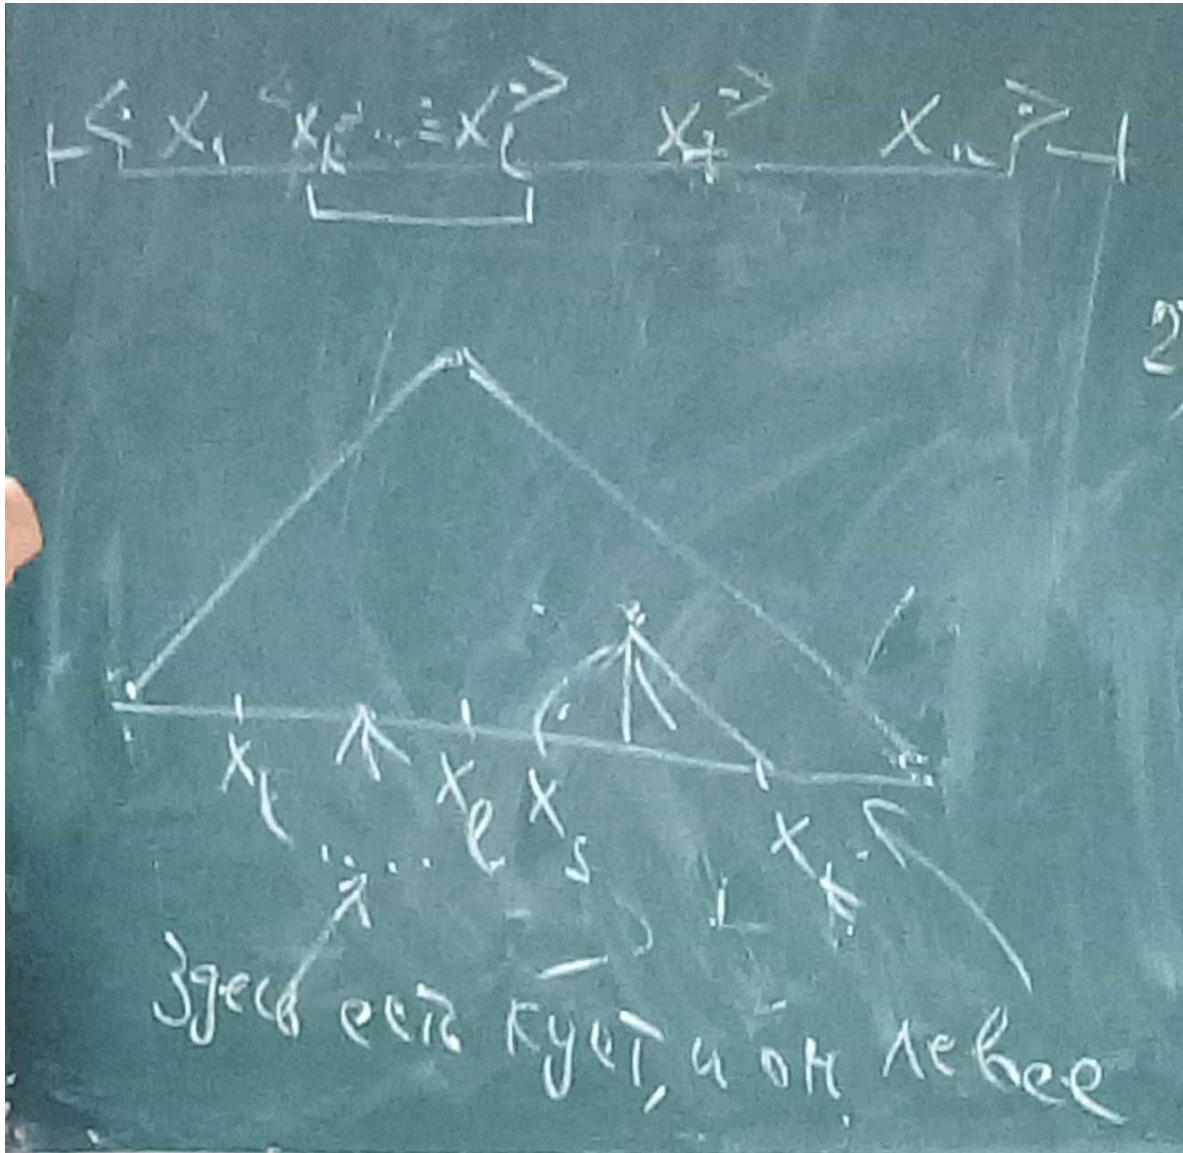 ⊢ <· x₁ <· x_k ≐ ... ≐ x_l ·> x_t ·> x_n ·> ⊣
2)
x_l x_s x_t
Здесь есть куст, и он левее